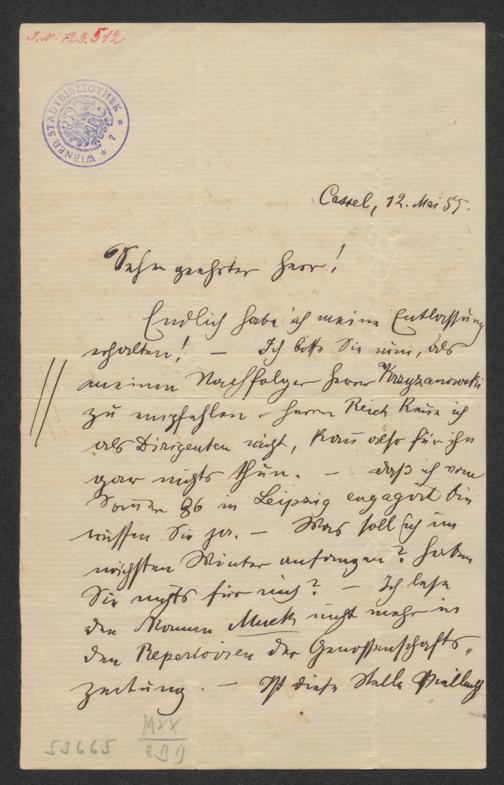 J.N. 123.512
WIENER STADTBIBLIOTHEK
Cassel, 12. Mai 85.
Sehr geehrter Herr!
Endlich habe ich meine Entlassung
erhalten! – Ich bitte Sie nun, als
meinen Nachfolger Herrn Krzyzanowski
zu empfehlen. Herrn Reich kenne ich
als Dirigenten nicht, kann also für ihn
gar nichts thun. – Daß ich vom
Sommer 86 in Leipzig engagirt bin
wissen Sie ja. – Was soll ich im
nächsten Winter anfangen? Haben
Sie nichts für mich? – Ich lese
den Namen Muck nicht mehr in
den Repertoiren der Genossenschafts-
zeitung. – Ist diese Stelle vielleicht
53665